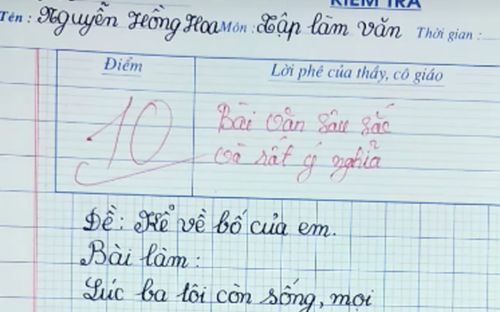 KIỂM TRA
Tên : Nguyễn Hồng Hoa Môn : Tập làm văn Thời gian :
Điểm
Lời phê của thầy, cô giáo
10
Bài văn sâu sắc
và rất ý nghĩa
Đề : Kể về bố của em.
Bài làm :
Lúc ba tôi còn sống, mọi